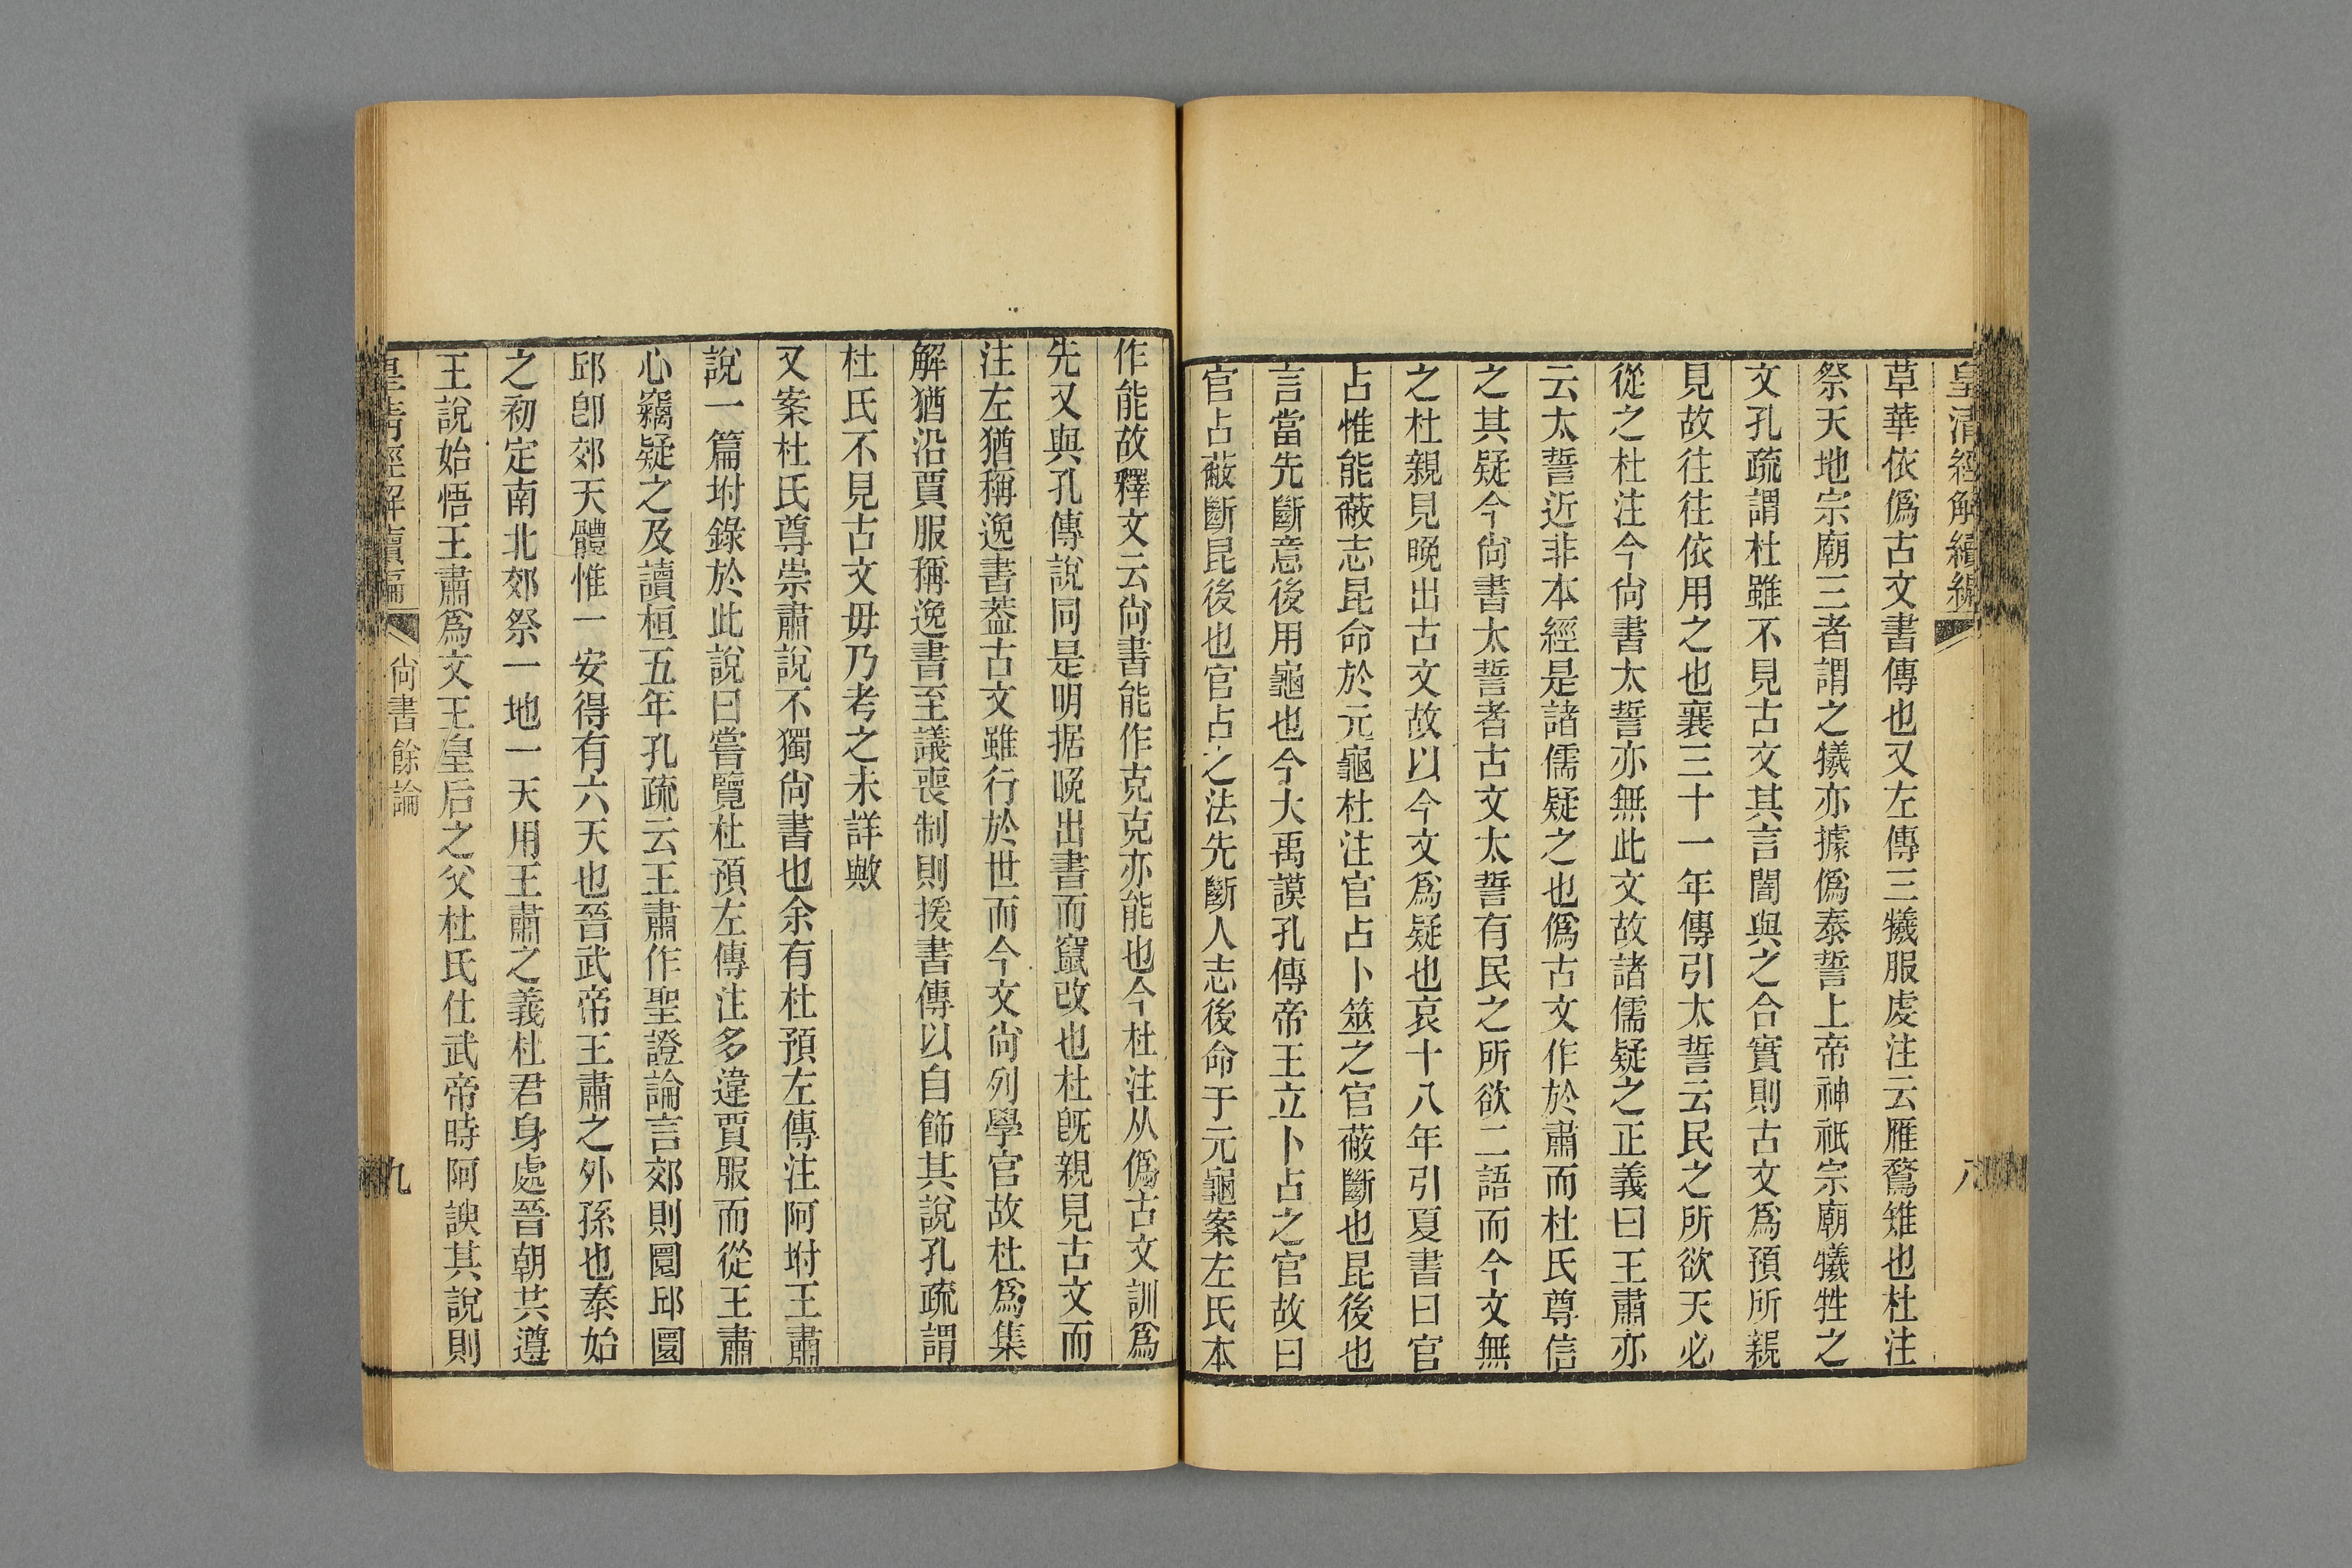 皇清經解續編
八
草華依僞古文書傳也又左傳三犧服虔注云雁鶩雉也杜注
祭天地宗廟三者謂之犧亦據僞泰誓上帝神祇宗廟犧牲之
文孔疏謂杜雖不見古文其言闇與之合實則古文爲預所親
見故往往依用之也襄三十一年傳引太誓云民之所欲天必
從之杜注今尙書太誓亦無此文故諸儒疑之正義曰王肅亦
云太誓近非本經是諸儒疑之也僞古文作於肅而杜氏尊信
之其疑今尙書太誓者古文太誓有民之所欲二語而今文無
之杜親見晚出古文故以今文爲疑也哀十八年引夏書曰官
占惟能蔽志昆命於元龜杜注官占卜筮之官蔽斷也昆後也
言當先斷意後用龜也今大禹謨孔傳帝王立卜占之官故曰
官占蔽斷昆後也官占之法先斷人志後命于元龜案左氏本
作能故釋文云尙書能作克克亦能也今杜注从僞古文訓爲
先又與孔傳說同是明据晚出書而竄改也杜旣親見古文而
注左猶稱逸書葢古文雖行於世而今文尙列學官故杜爲集
解猶沿賈服稱逸書至議喪制則援書傳以自飾其說孔疏謂
杜氏不見古文毋乃考之未詳歟
又案杜氏尊崇肅說不獨尙書也余有杜預左傳注阿坿王肅
說一篇坿錄於此說曰嘗覽杜預左傳注多違賈服而從王肅
心竊疑之及讀桓五年孔疏云王肅作聖證論言郊則圜邱圜
邱卽郊天體惟一安得有六天也晉武帝王肅之外孫也泰始
之初定南北郊祭一地一天用王肅之義杜君身處晉朝共遵
王說始悟王肅爲文王皇后之父杜氏仕武帝時阿諛其說則
皇清經解續編
尙書餘論
九